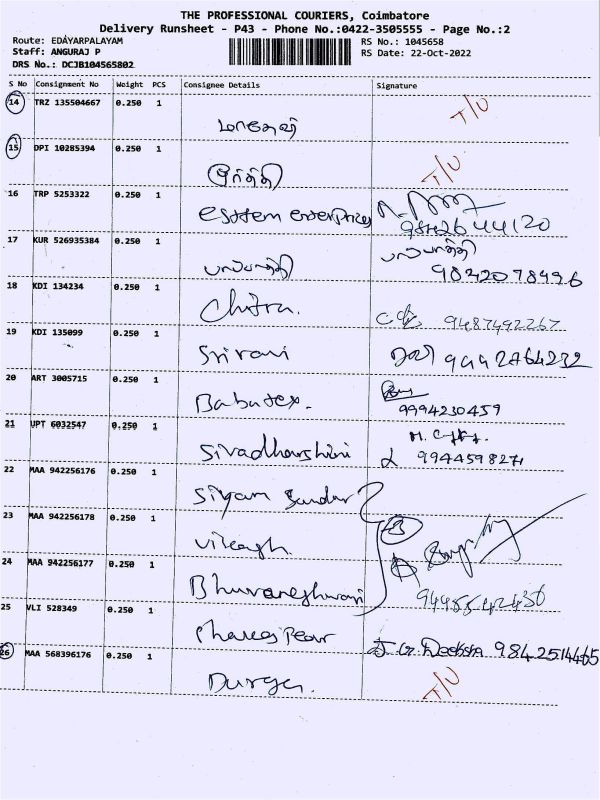 THE PROFESSIONAL COURIERS, Coimbatore
Delivery Runsheet - P43 - Phone No.:0422-3505555 - Page No.:2
Route: EDAYARPALAYAM
RS No.: 1045658
Staff: ANGURAJ P
RS Date: 22-Oct-2022
DRS No.: DCJB104565802
S No Consignment No Weight PCS Consignee Details Signature
14 TRZ 135504667 0.250 1 T/U
மாதேஷ்
15 DPI 10285394 0.250 1 T/U
16 TRP 5253322 0.250 1
esttem enterprises 9842644120
17 KUR 526935384 0.250 1
பாப்பாத்தி 9842078496
18 KDI 134234 0.250 1
Chitra. 9487492267
19 KDI 135099 0.250 1
Srirani
20 ART 3005715 0.250 1
Babatex. 9994230459
21 UPT 6032547 0.250 1
Sivadharshini 9944598271
22 MAA 942256176 0.250 1
Siyam Sundar
23 MAA 942256178 0.250 1
Vikash.
24 MAA 942256177 0.250 1
Bhuvaneshwari
25 VLI 528349 0.250 1
J.G. Deeksha 9842514465
26 MAA 568396176 0.250 1
Durga. T/U